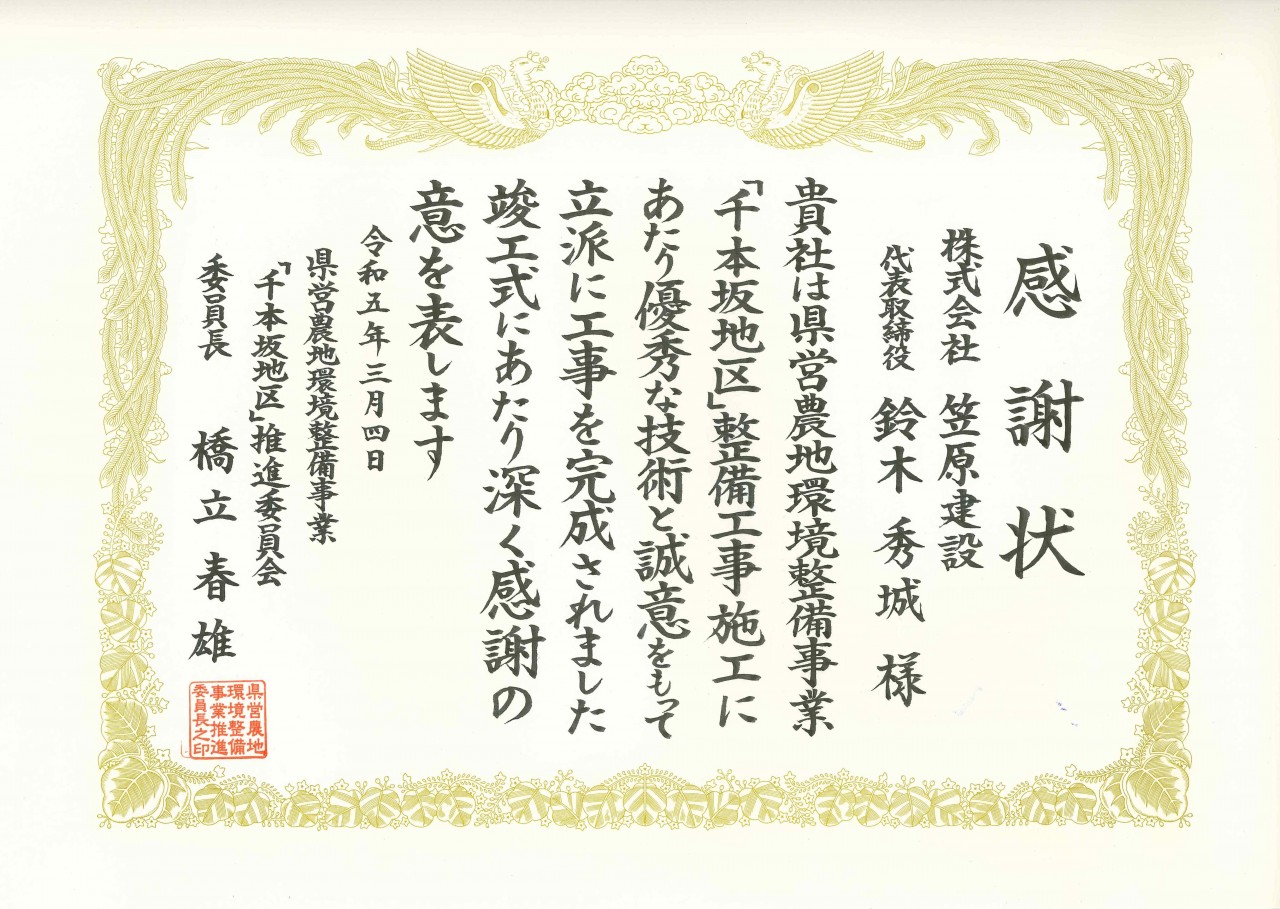 感謝状
株式会社 笠原建設
代表取締役 鈴木秀城 様
貴社は県営農地環境整備事業
「千本坂地区」整備工事施工に
あたり優秀な技術と誠意をもって
立派に工事を完成されました
竣工式にあたり深く感謝の
意を表します
令和五年三月四日
県営農地環境整備事業
「千本坂地区」推進委員会
委員長 橋立春雄
県営農地
環境整備
事業推進
委員長之印